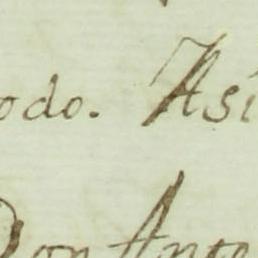 odo. Así
Don Anto